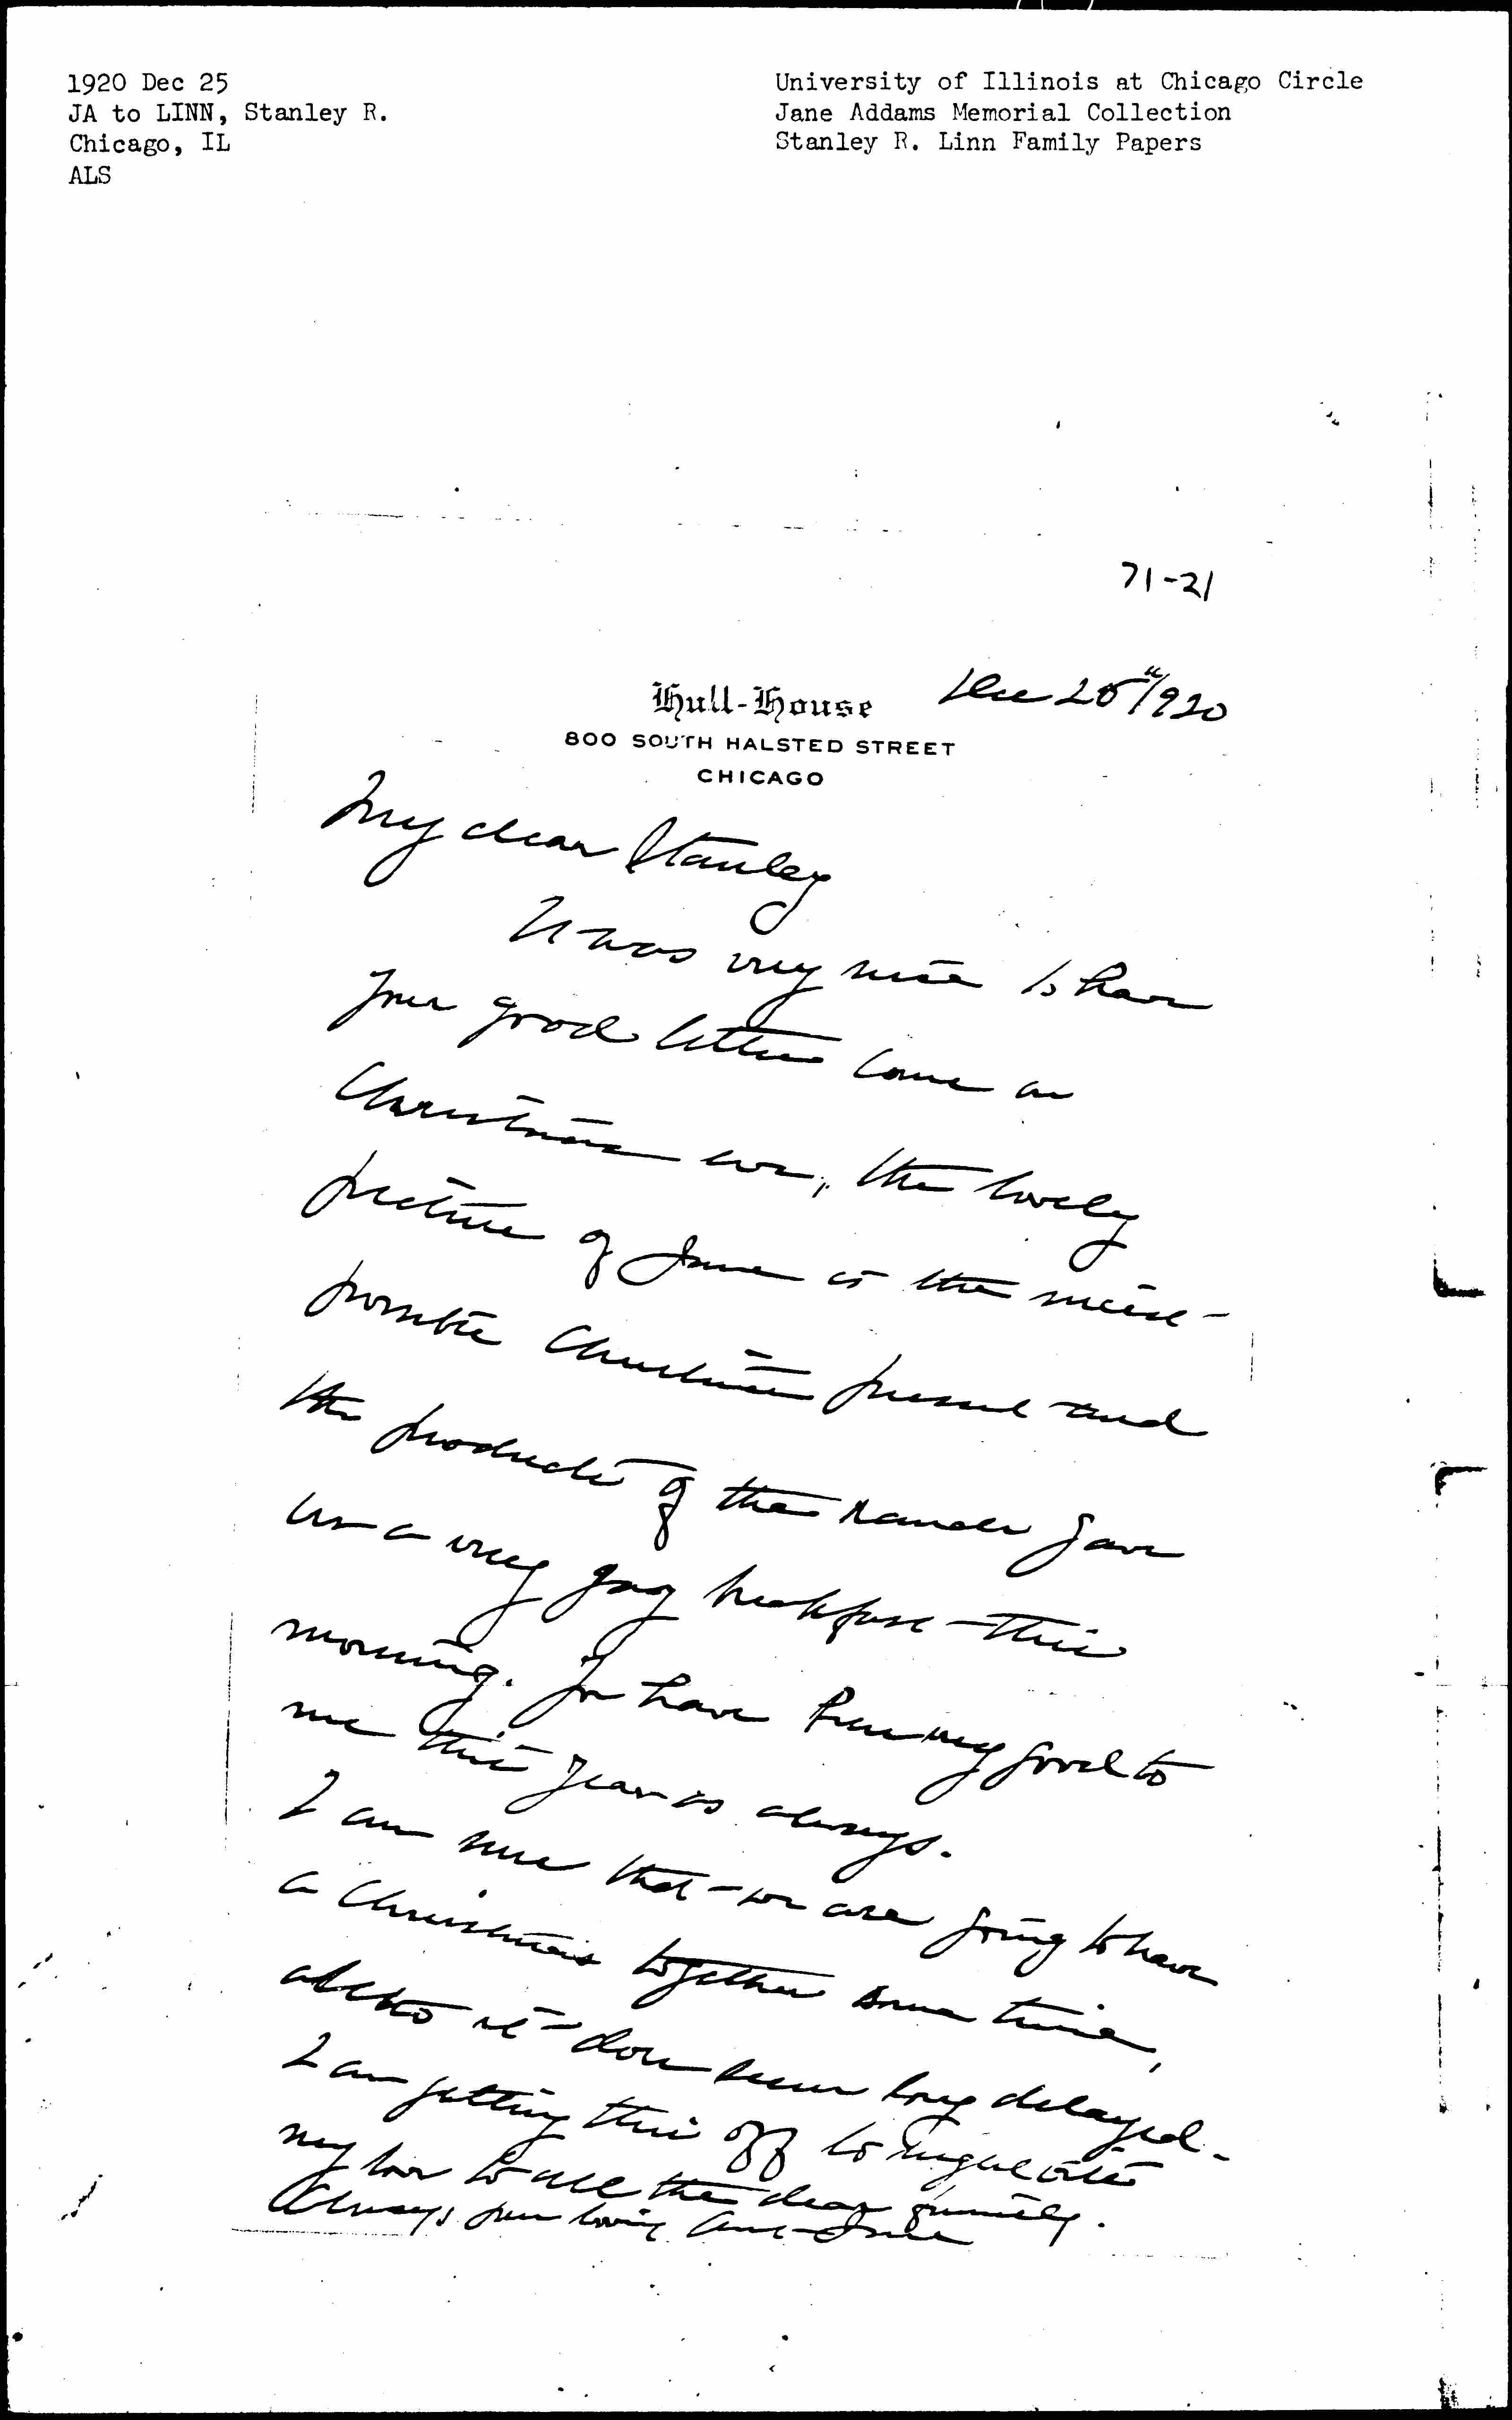 1920 Dec 25
JA to LINN, Stanley R.
Chicago, IL
ALS
University of Illinois at Chicago Circle
Jane Addams Memorial Collection
Stanley R. Linn Family Papers
71-21
Hull-House
800 SOUTH HALSTED STREET
CHICAGO
Dec 25"/1920
My dear Stanley
It was very nice to have
your good letter come on
Christmas eve, the lovely
picture of Jane is the nicest
possible Christmas present and
the products of the ranch gave
us a very gay breakfast this
morning. You have been very good to
me this year as always.
I am sure that we are going to have
a Christmas together some time,
altho it does seem long delayed.
I am getting this off to night with
my love to all the dear family.
Always your loving Aunt Jane